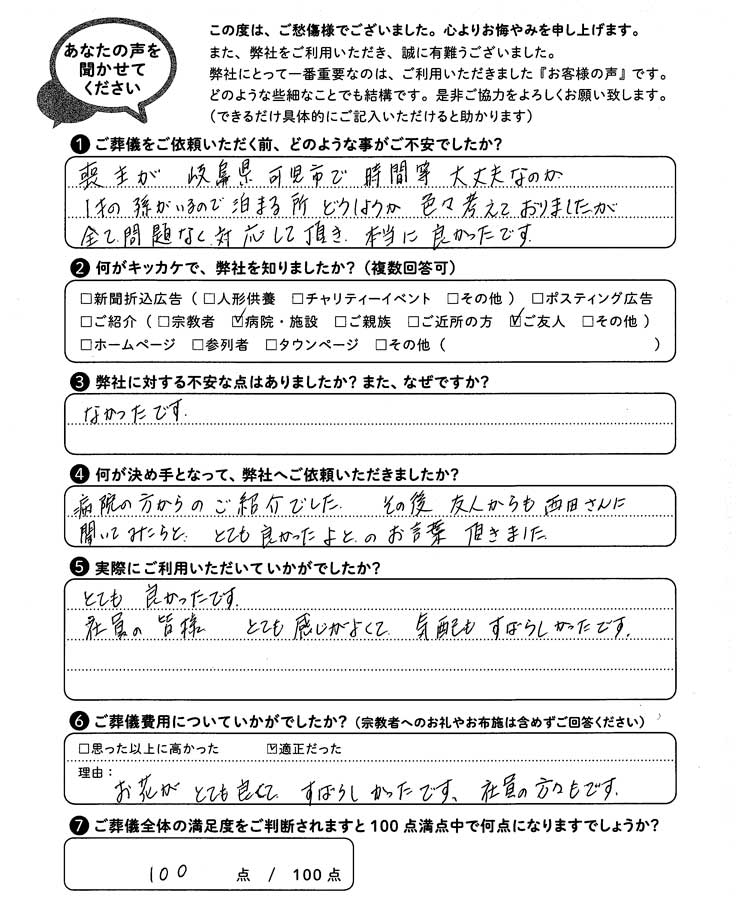 あなたの声を
聞かせて
ください
この度は、ご愁傷様でございました。心よりお悔やみを申し上げます。
また、弊社をご利用いただき、誠に有難うございました。
弊社にとって一番重要なのは、ご利用いただきました『お客様の声』です。
どのような些細なことでも結構です。是非ご協力をよろしくお願い致します。
(できるだけ具体的にご記入いただけると助かります)
❶ご葬儀をご依頼いただく前、どのような事がご不安でしたか?
喪主が 岐阜県可児市で 時間等 大丈夫なのか
1才の孫がいるので泊まる所 どうしようか 色々考えておりましたが
全て問題なく対応して頂き、本当に良かったです。
❷何がキッカケで、弊社を知りましたか?(複数回答可)
□新聞折込広告(□人形供養 □チャリティーイベント □その他) □ポスティング広告
□ご紹介(□宗教者 ☑病院・施設 □ご親族 □ご近所の方 ☑ご友人 □その他)
□ホームページ □参列者 □タウンページ □その他( )
❸弊社に対する不安な点はありましたか?また、なぜですか?
なかったです。
❹何が決め手となって、弊社へご依頼いただきましたか?
病院の方からのご紹介でした。 その後 友人からも西田さんに
聞いてみたらと、とても良かったよと、のお言葉 頂きました。
❺実際にご利用いただいていかがでしたか?
とても 良かったです。
社員の 皆様 とても感じがよくて、気配も すばらしかったです。
❻ご葬儀費用についていかがでしたか?(宗教者へのお礼やお布施は含めずご回答ください)
□思った以上に高かった ☑適正だった
理由:
お花が とても良くて、すばらしかったです、社員の方々もです。
❼ご葬儀全体の満足度をご判断されますと100点満点中で何点になりますでしょうか?
100 点 / 100点